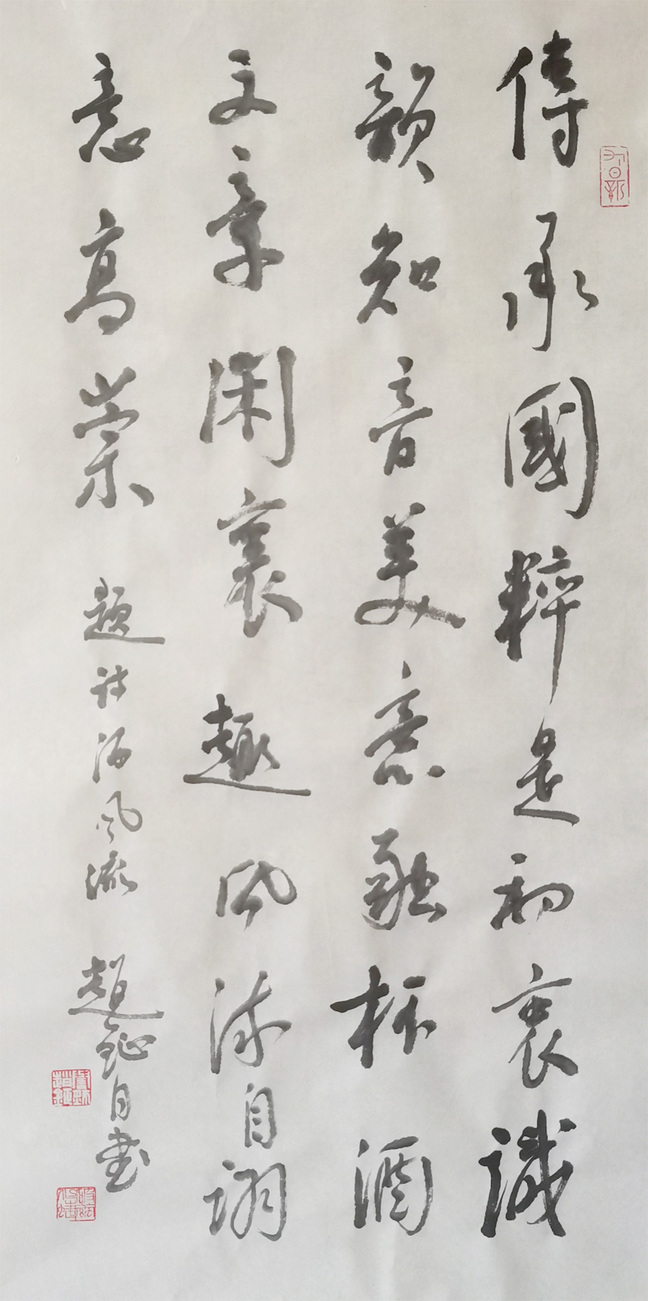 傳承國粹是初衷識
韻知音美意融杯酒
文章闲裏趣風流自詡
意高崇 題詩酒風流 趙 自書